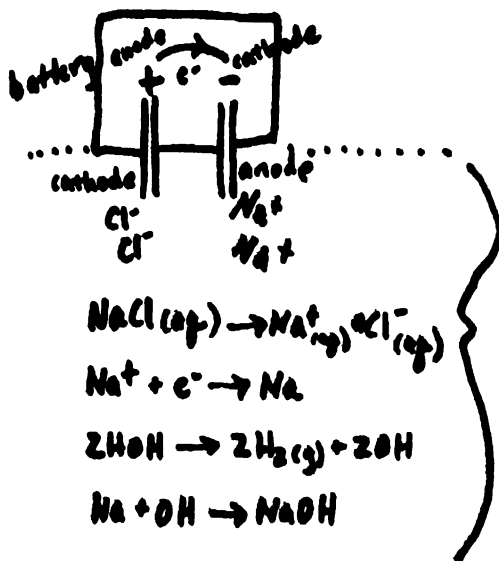 battery anode e⁻ cathode
+ -
cathode anode
Cl⁻ Na+
Cl⁻ Na+
NaCl(aq) → Na⁺(aq) + Cl⁻(aq)
Na⁺ + e⁻ → Na
2HOH → 2H₂(g) + 2OH
Na + OH → NaOH